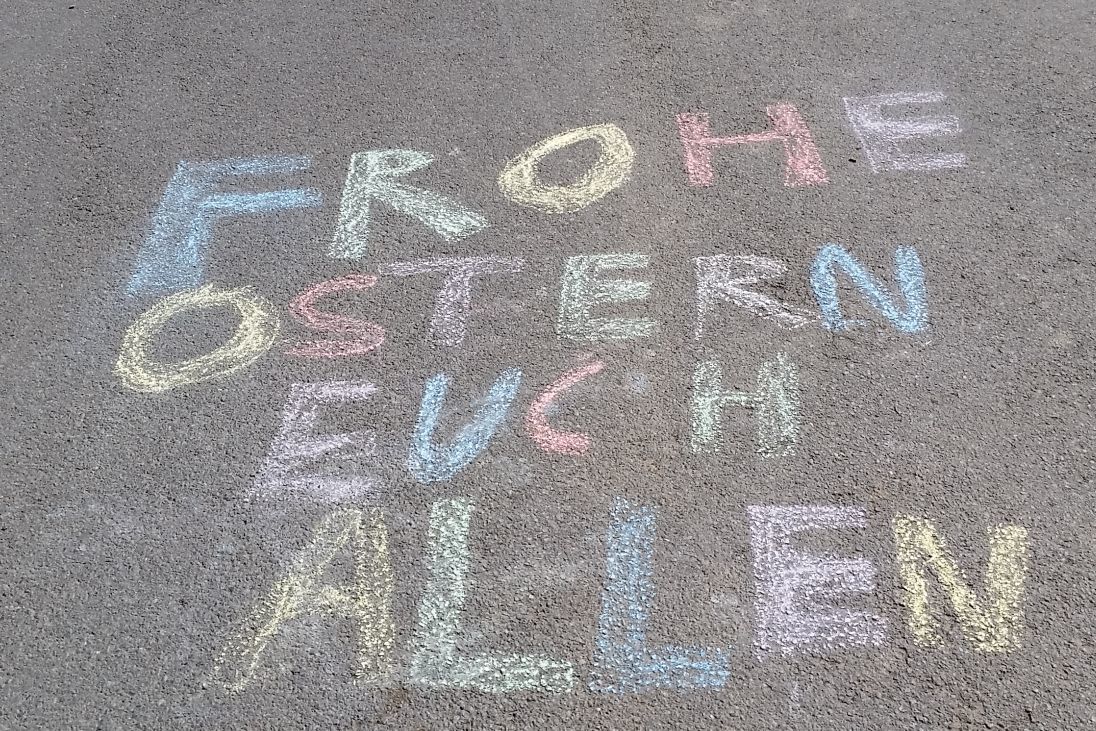 FROHE
OSTERN
EUCH
ALLEN